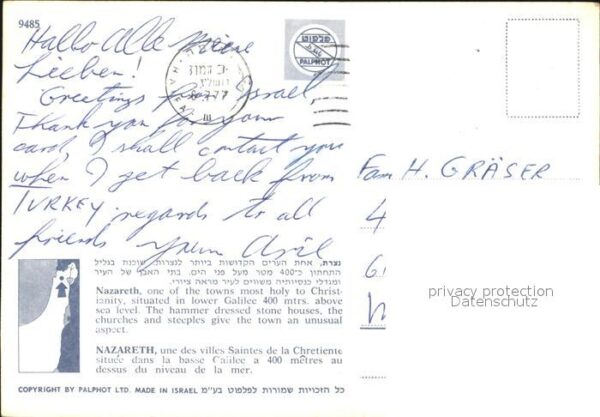 9485
Hallo Alle Meine
Lieben!
Greetings from Israel,
Thank you for your
card, I shall contact you
when I get back from
TURKEY. regards to all
friends
פלפוט
PALPHOT
Fam H. GRÄSER
privacy protection
Datenschutz
נצרת, אחת הערים הקדושות ביותר לנצרות, שוכנת בגליל
התחתון כ־400 מטר מעל פני הים. בתי האבן של העיר
ומגדלי כנסיותיה משווים לעיר מראה ציורי.
Nazareth, one of the towns most holy to Christ-
ianity, situated in lower Galilee 400 mtrs. above
sea level. The hammer dressed stone houses, the
churches and steeples give the town an unusual
aspect.
NAZARETH, une des villes Saintes de la Chretiente
située dans la basse Galilee a 400 mètres au
dessus du niveau de la mer.
COPYRIGHT BY PALPHOT LTD. MADE IN ISRAEL כל הזכויות שמורות לפלפוט בע״מ